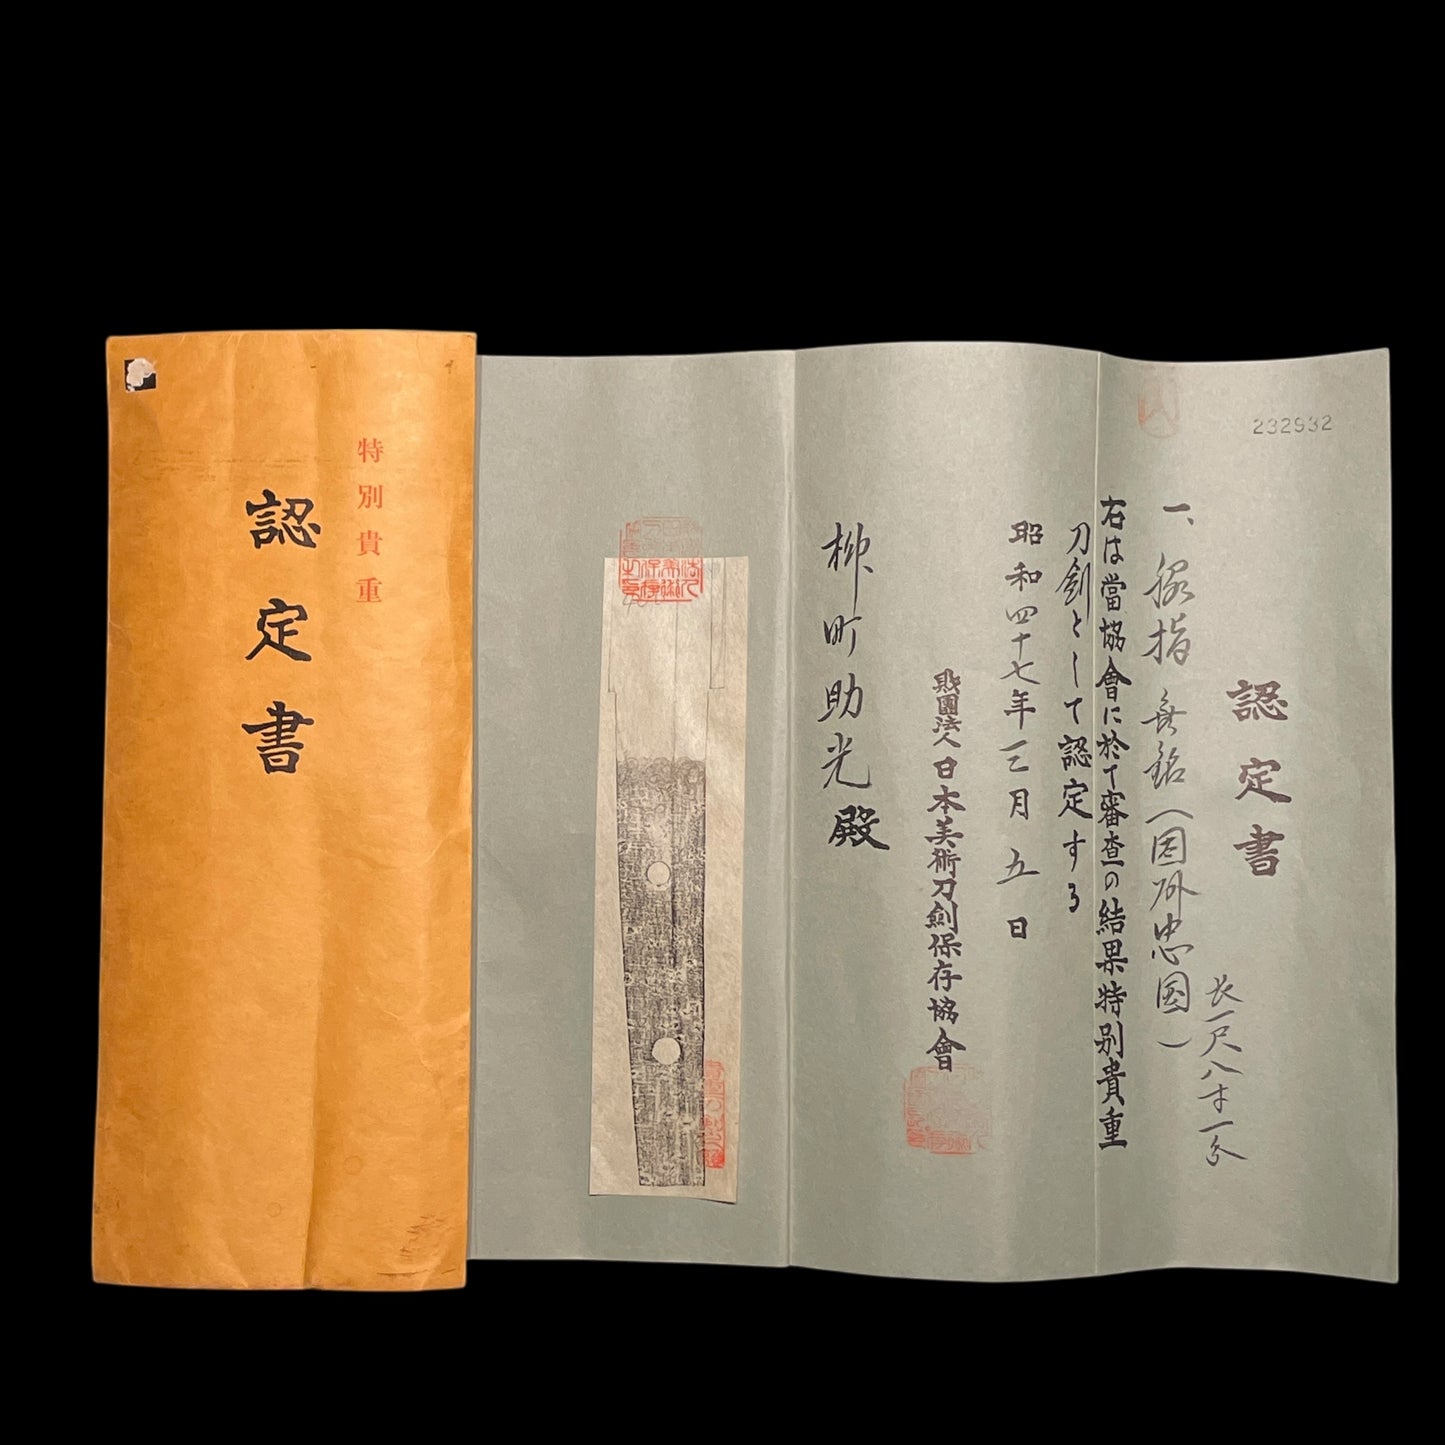 特別貴重
認定書
232932
認定書
長一尺八寸一分
一、脇指 無銘(因州忠国)
右は當協會に於て審査の結果特別貴重
刀劍として認定する
昭和四十七年三月五日
財團法人日本美術刀劍保存協會
柳町助光殿